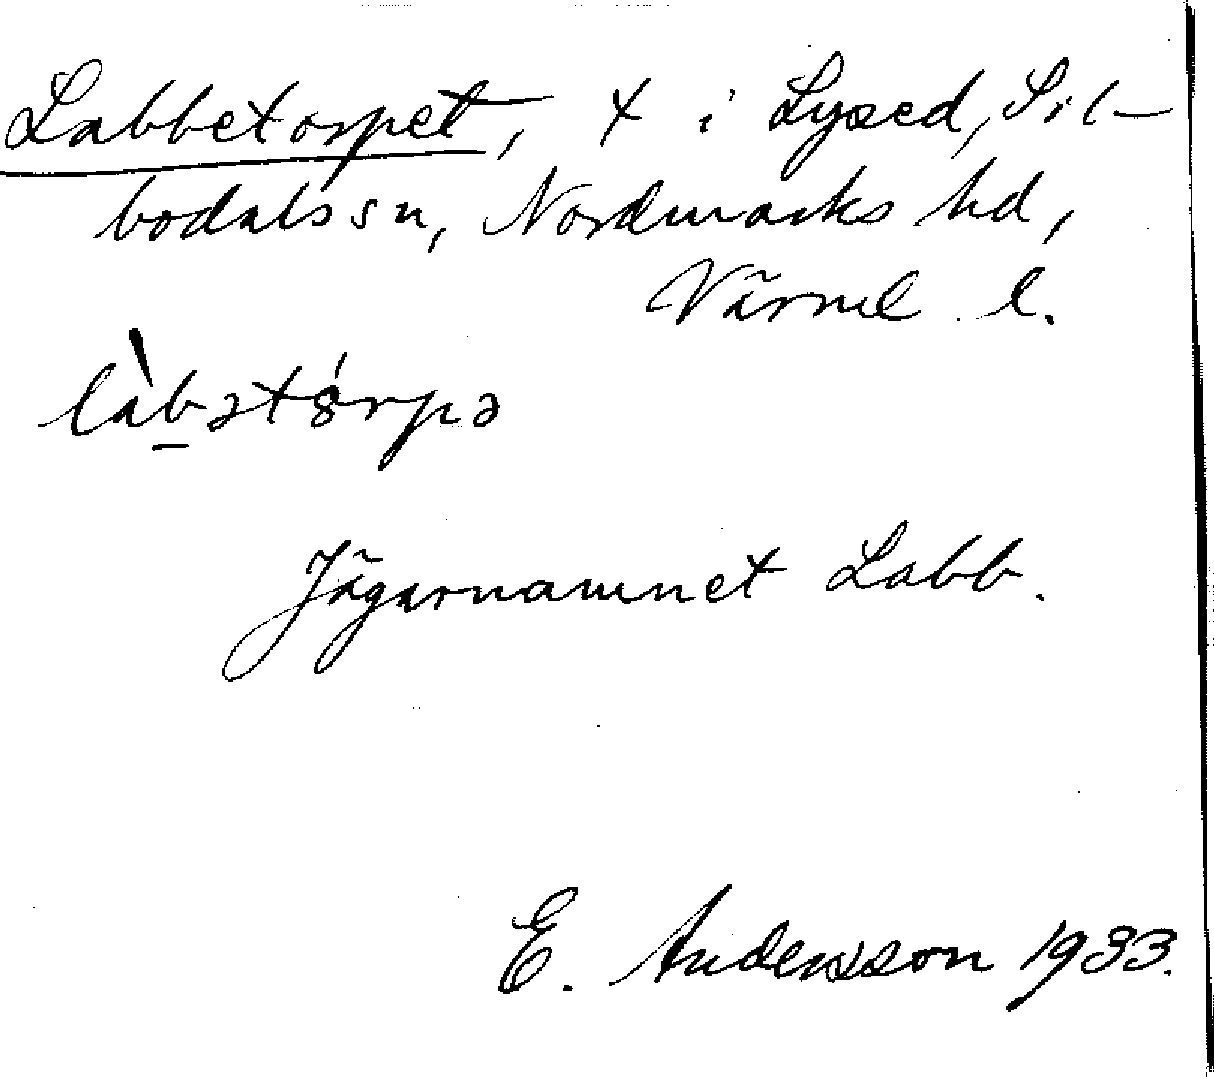 Labbetorpet, t i Lysed, Sil-
bodals sn, Nordmarks hd,
Värml l.
là̀bət8́rpə
Jägarnamnet Labb.
E. Andersson 1933.